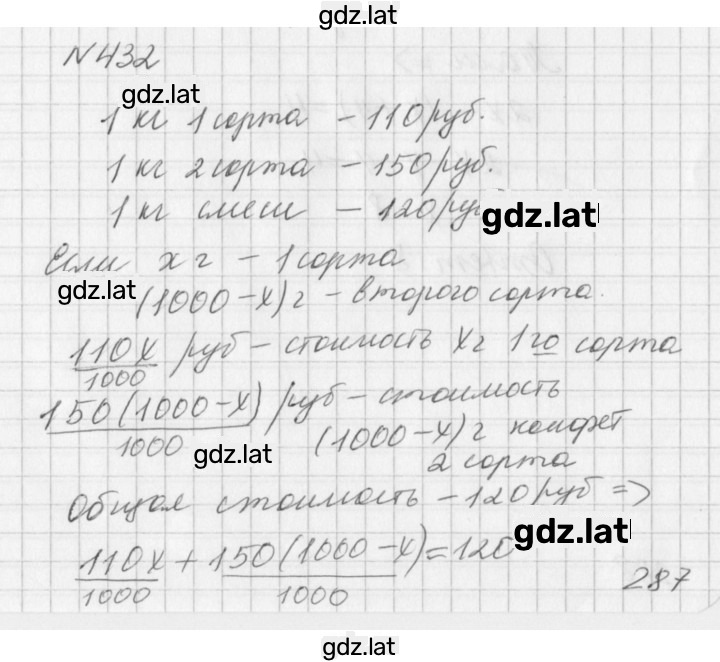 gdz.lat
N432
gdz.lat
1 кг 1 сорта - 110 руб.
1 кг 2 сорта - 150 руб.
1 кг смеси - 120 ру
gdz.lat
Если x г - 1 сорта
gdz.lat
(1000-x) г - второго сорта.
110x/1000 руб - стоимость x г 1го сорта
150(1000-x)/1000 руб - стоимость
(1000-x) г конфет
gdz.lat
2 сорта
Общая стоимость - 120 руб =>
gdz.lat
110x/1000 + 150(1000-x)/1000 = 120
287
gdz.lat